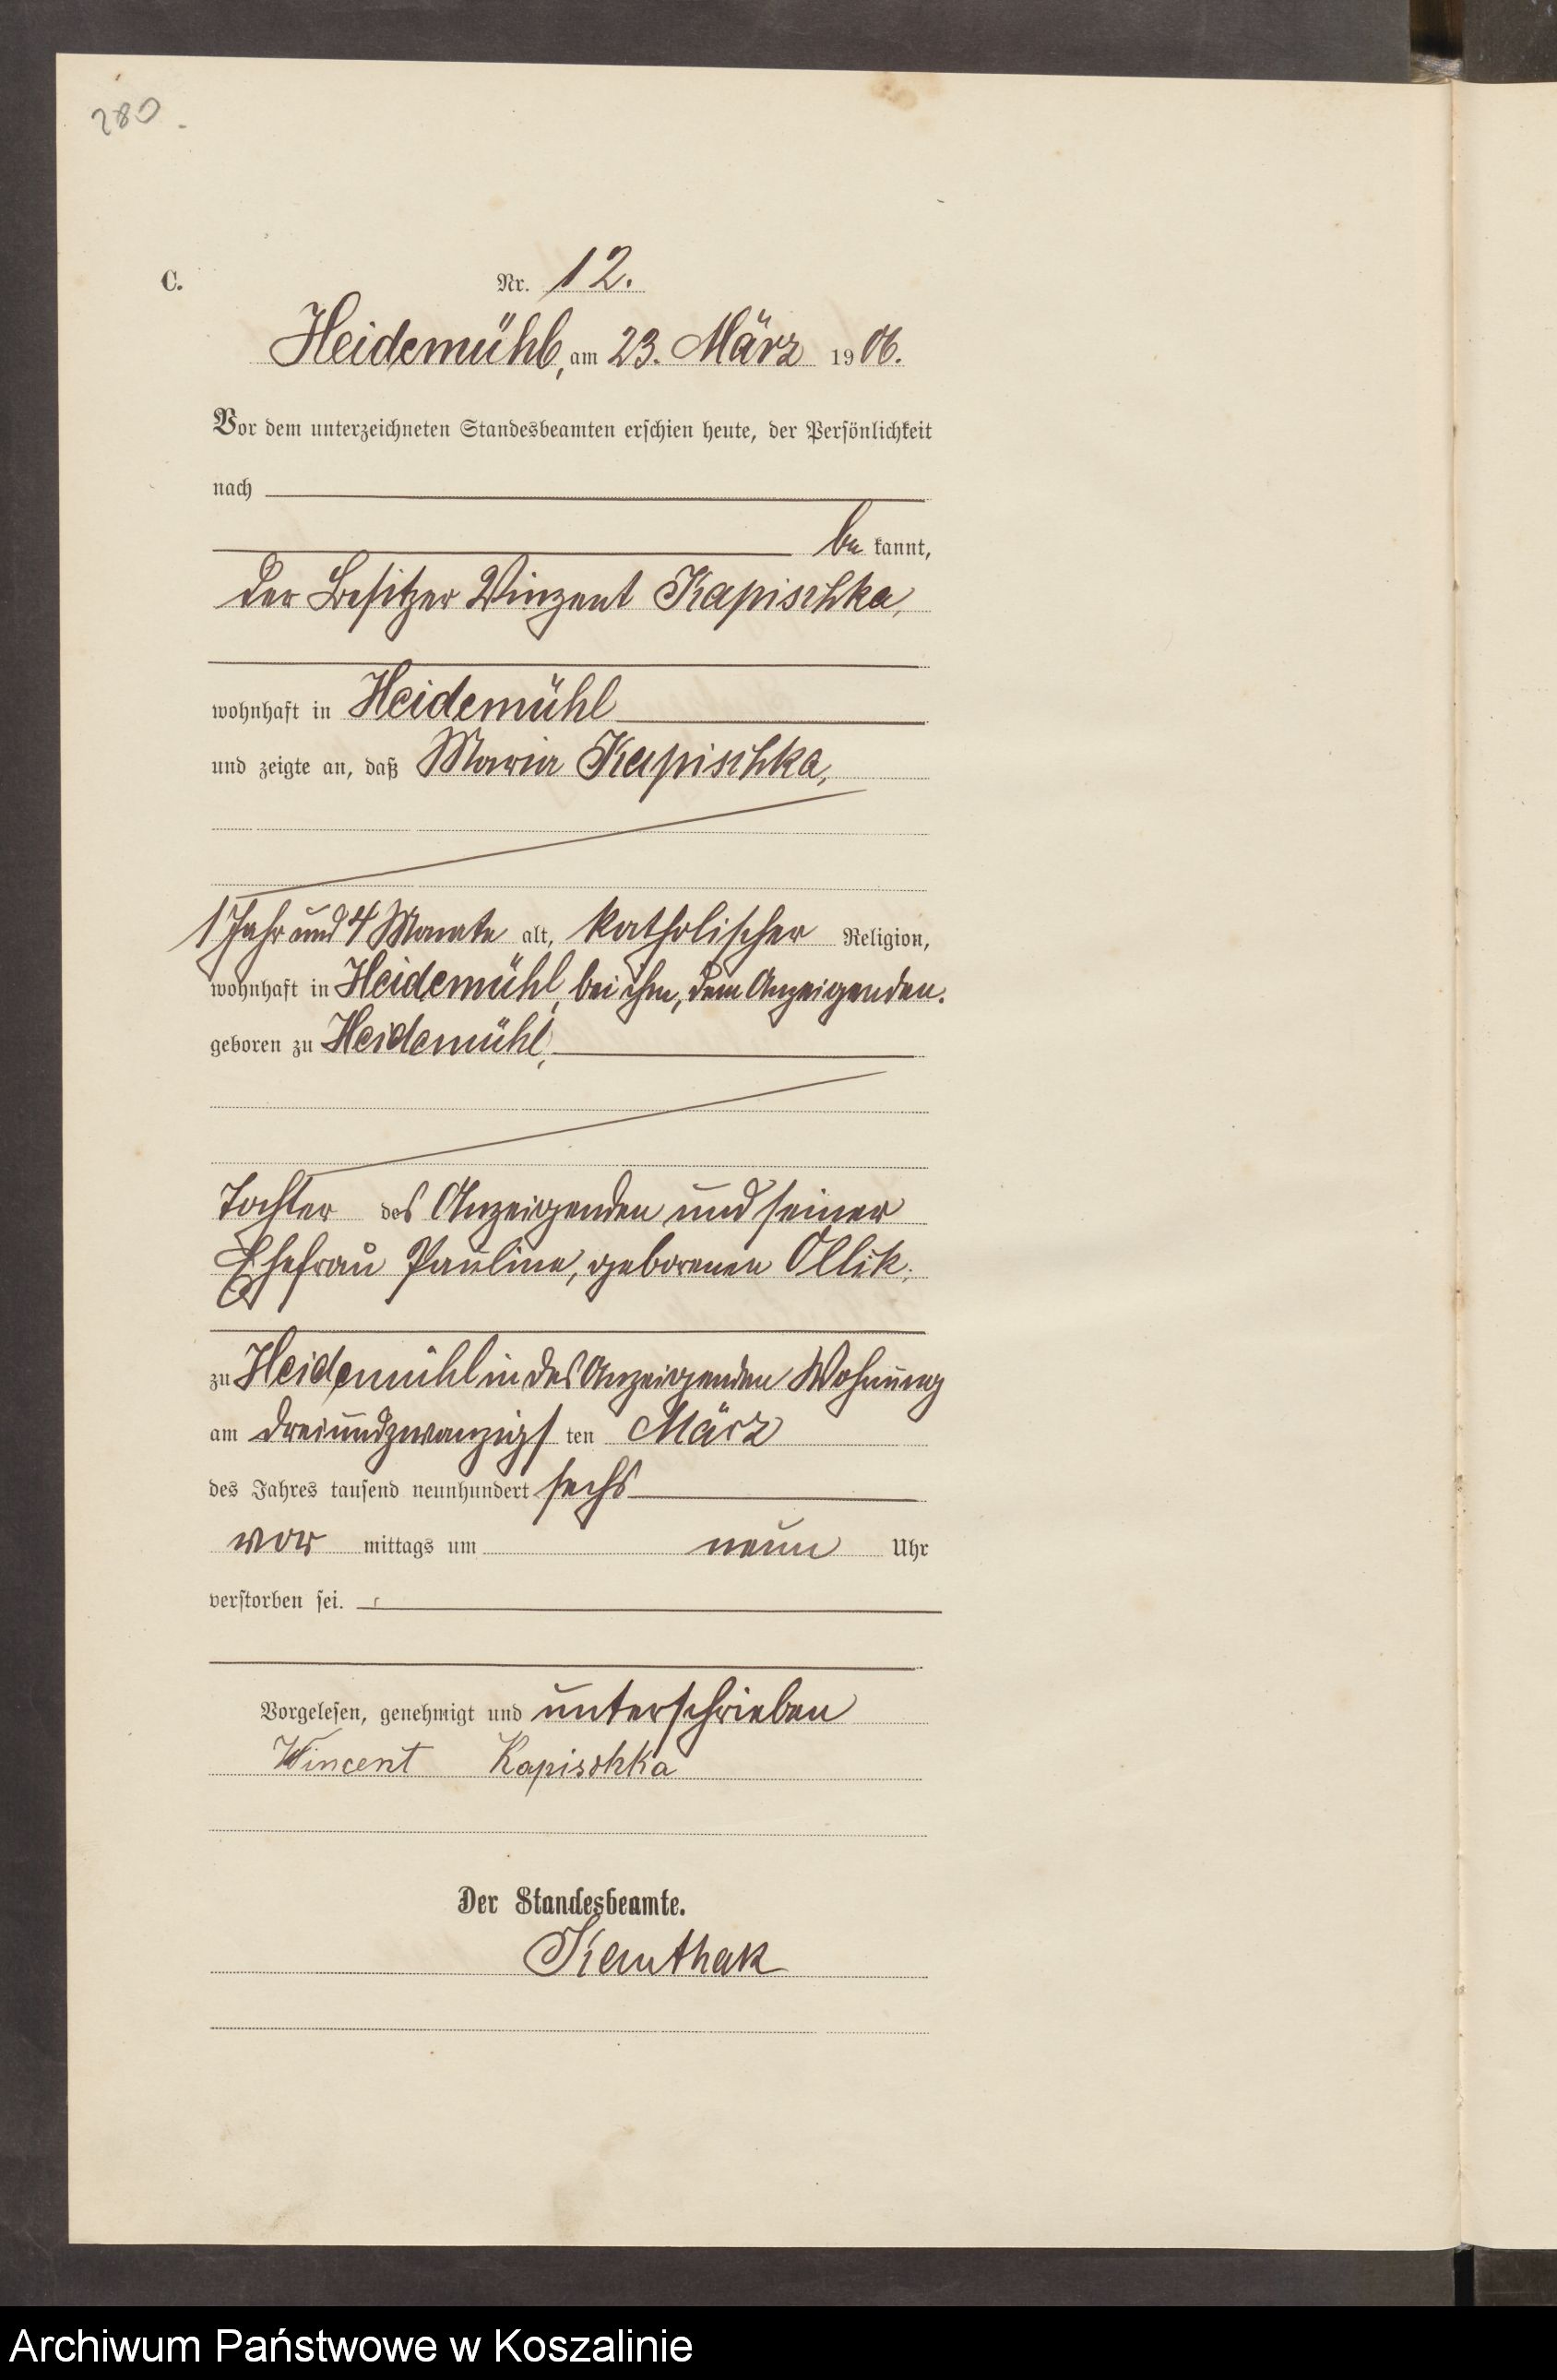 280.
C. Nr. 12.
Heidemühl, am 23. März 1906.
Vor dem unterzeichneten Standesbeamten erschien heute, der Persönlichkeit
nach
be kannt,
der Besitzer Vinzent Kapischka,
wohnhaft in Heidemühl
und zeigte an, daß Maria Kapischka,
1 Jahr und 4 Monate alt, katholischer Religion,
wohnhaft in Heidemühl, bei ihm, dem Anzeigenden.
geboren zu Heidemühl,
Tochter des Anzeigenden und seiner
Ehefrau Pauline, geborenen Ollik.
zu Heidemühl in des Anzeigenden Wohnung
am dreiundzwanzigs ten März
des Jahres tausend neunhundert sechs
vor mittags um neun Uhr
verstorben sei.
Vorgelesen, genehmigt und unterschrieben
Wincent Kapischka
Der Standesbeamte.
Kauthak
Archiwum Państwowe w Koszalinie